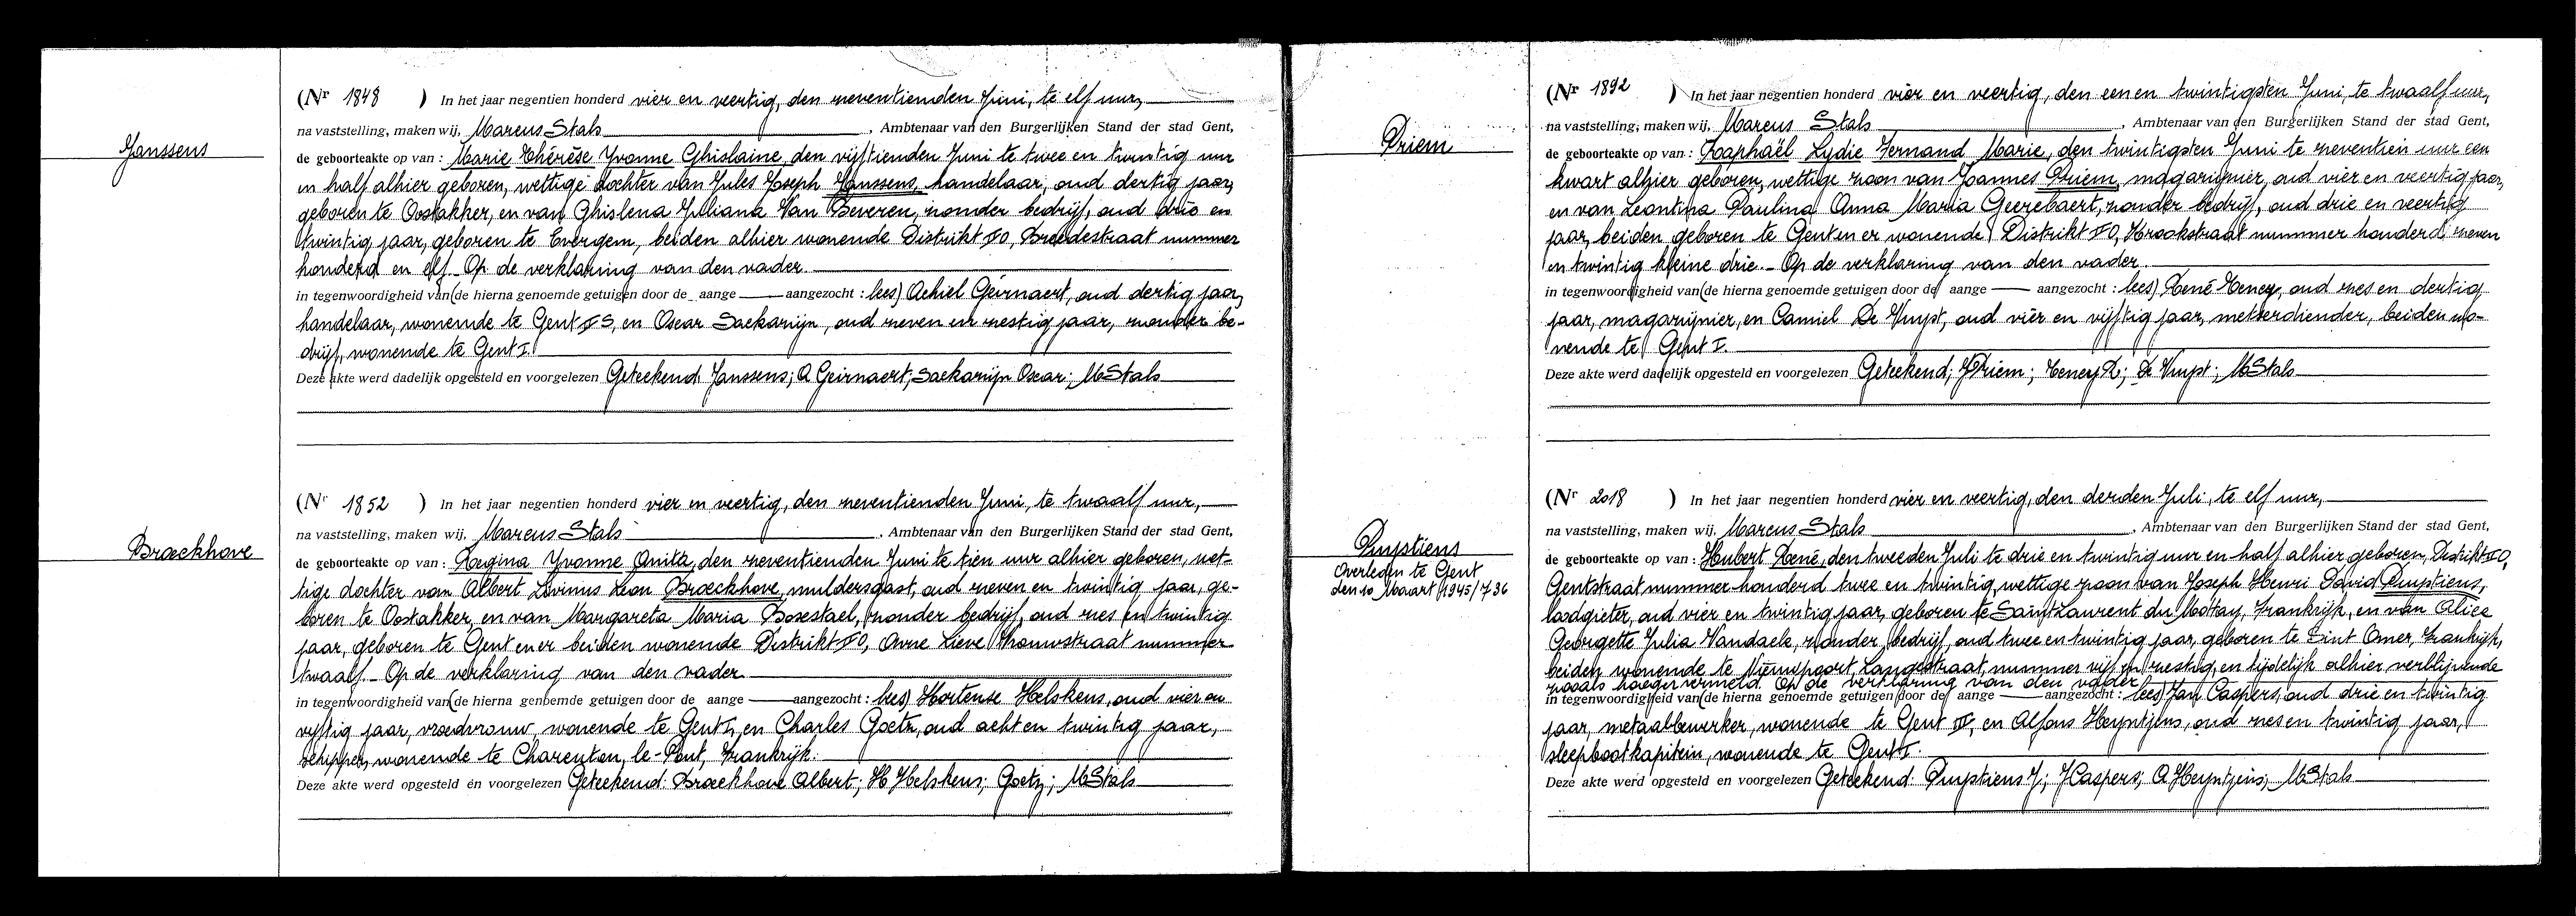 Janssens
(Nr 1848 ) In het jaar negentien honderd vier en veertig, den zeventienden Juni, te elf uur,
na vaststelling, maken wij, Marcus Stals, Ambtenaar van den Burgerlijken Stand der stad Gent,
de geboorteakte op van : Marie Thérèse Yvonne Ghislaine, den vijftienden Juni te twee en twintig uur
en half alhier geboren, wettige dochter van Jules Joseph Janssens, handelaar, oud dertig jaar,
geboren te Oostakker, en van Ghislena Juliana Van Beveren, zonder bedrijf, oud drie en
twintig jaar, geboren te Evergem, beiden alhier wonende Distrikt FO, Breedestraat nummer
honderd en elf. Op de verklaring van den vader.
in tegenwoordigheid van (de hierna genoemde getuigen door de aange aangezocht : lees) Achiel Geirnaert, oud dertig jaar,
handelaar, wonende te Gent FS, en Oscar Sackarijn, oud zeven en zestig jaar, zonder be-
drijf, wonende te Gent I.
Deze akte werd dadelijk opgesteld en voorgelezen Geteekend: Janssens; A Geirnaert; Sackarijn Oscar; MStals
Broeckhove
(Nr 1852 ) In het jaar negentien honderd vier en veertig, den zeventienden Juni, te twaalf uur,
na vaststelling, maken wij, Marcus Stals, Ambtenaar van den Burgerlijken Stand der stad Gent,
de geboorteakte op van : Regina Yvonne Anita, den zeventienden Juni te tien uur alhier geboren, wet-
tige dochter van Albert Livinus Leon Broeckhove, muldersgast, oud zeven en twintig jaar, ge-
boren te Oostakker, en van Margareta Maria Bosestael, zonder bedrijf, oud zes en twintig
jaar, geboren te Gent en er beiden wonende Distrikt FO, Onze Lieve Vrouwstraat nummer
twaalf. Op de verklaring van den vader
in tegenwoordigheid van (de hierna genoemde getuigen door de aange aangezocht : lees) Hortense Helskens, oud vier en
vijftig jaar, vroedvrouw, wonende te Gent I, en Charles Goetz, oud acht en twintig jaar,
schipper, wonende te Charenton, le-Pont, Frankrijk.
Deze akte werd opgesteld en voorgelezen Geteekend: Broeckhove Albert; H Helskens; Goetz; MStals
Priem
(Nr 1892 ) In het jaar negentien honderd vier en veertig, den een en twintigsten Juni, te twaalf uur,
na vaststelling, maken wij, Marcus Stals, Ambtenaar van den Burgerlijken Stand der stad Gent,
de geboorteakte op van : Raphaël Lydie Fernand Marie, den twintigsten Juni te zeventien uur een
kwart alhier geboren, wettige zoon van Joannes Priem, magazijnier, oud vier en veertig jaar,
en van Leontina Paulina Anna Maria Geerebaert, zonder bedrijf, oud drie en veertig
jaar, beiden geboren te Gent en er wonende Distrikt FO, Krookstraat nummer honderd zeven
en twintig kleine drie. Op de verklaring van den vader.
in tegenwoordigheid van (de hierna genoemde getuigen door de aange aangezocht : lees) René Teney, oud zes en dertig
jaar, magazijnier, en Camiel De Vuyst, oud vier en vijftig jaar, metserdiender, beiden wo-
nende te Gent I.
Deze akte werd dadelijk opgesteld en voorgelezen Geteekend; JPriem; Teney R; De Vuyst; MStals
Puystiens
Overleden te Gent
den 10 Maart 1945/736
(Nr 2018 ) In het jaar negentien honderd vier en veertig, den derden Juli, te elf uur,
na vaststelling, maken wij, Marcus Stals, Ambtenaar van den Burgerlijken Stand der stad Gent,
de geboorteakte op van : Hubert René, den tweeden Juli te drie en twintig uur en half alhier geboren, Distrikt FO,
Gentstraat nummer honderd twee en twintig, wettige zoon van Joseph Henri David Puystiens,
loodgieter, oud vier en twintig jaar, geboren te Saint Laurent du Mottay, Frankrijk, en van Alice
Georgette Julia Vandaele, zonder bedrijf, oud twee en twintig jaar, geboren te Sint Omer, Frankrijk,
beiden wonende te Nieuwpoort, Langestraat, nummer vijf en zestig, en tijdelijk alhier verblijvende
zooals hooger vermeld. Op de verklaring van den vader
in tegenwoordigheid van (de hierna genoemde getuigen door de aange aangezocht : lees) Jan Caspers, oud drie en twintig
jaar, metaalbewerker, wonende te Gent III, en Alfons Heyntjens, oud zes en twintig jaar,
sleepbootkapitein, wonende te Gent I.
Deze akte werd opgesteld en voorgelezen Geteekend: Puystiens J; J Caspers; A Heyntjens; MStals